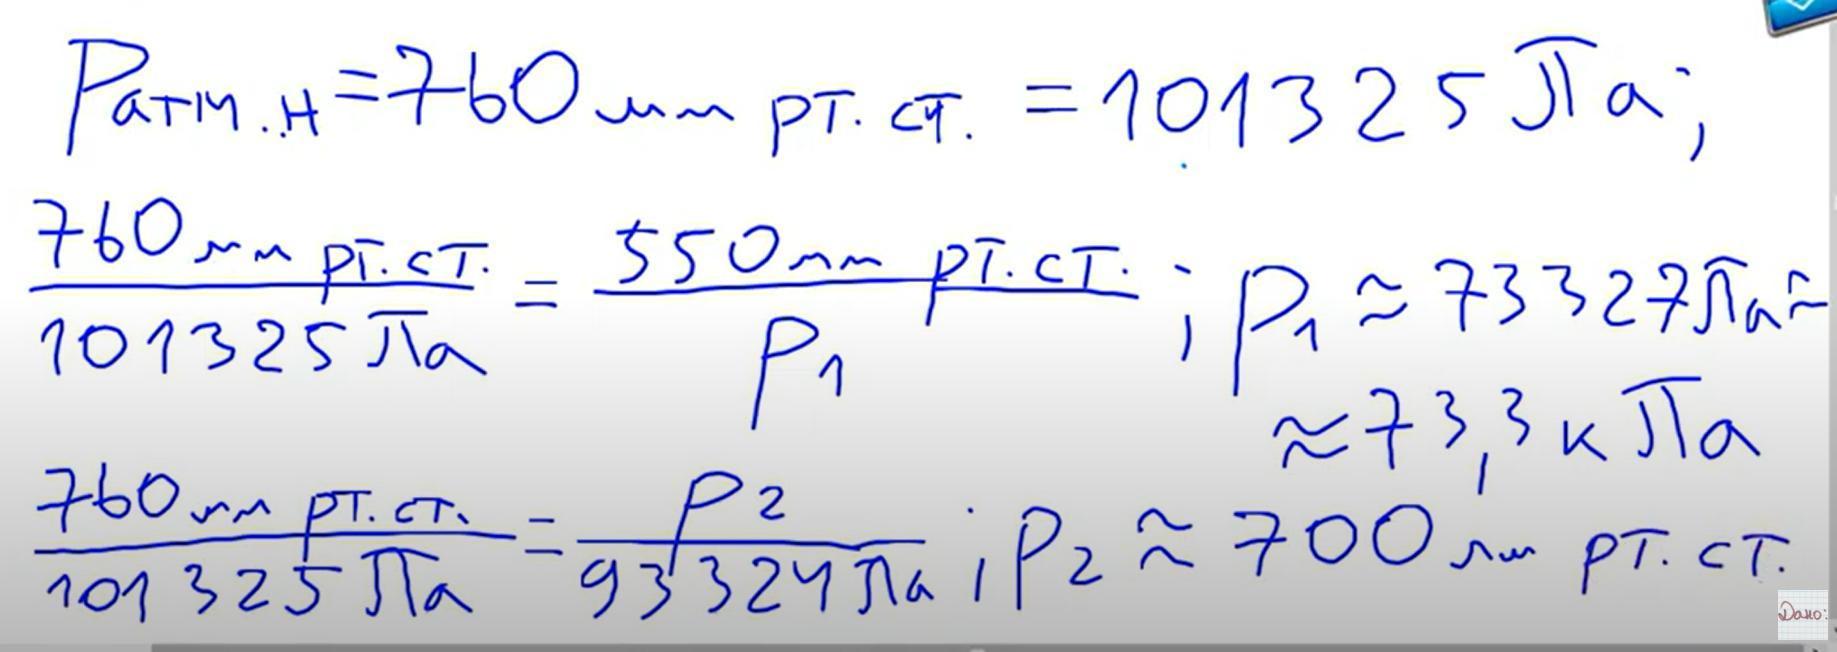 Pатм.н = 760 мм рт. ст. = 101325 Па;
760 мм рт.ст. / 101325 Па = 550 мм рт.ст. / p1 ; p1 ≈ 73327 Па ≈
≈ 73,3 кПа
760 мм рт.ст. / 101325 Па = p2 / 93324 Па ; p2 ≈ 700 мм рт.ст.
Дано: